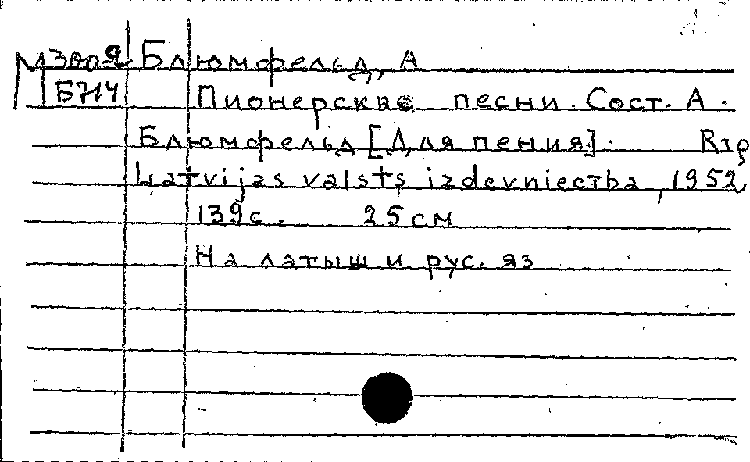 Блюмфельд, А
Б714 Пионерские песни. Сост. А.
Блюмфельд [Для пения]. Rīg
Latvijas valsts izdevniecтba, 1952,
139с. 25см
На латыш и рус. яз